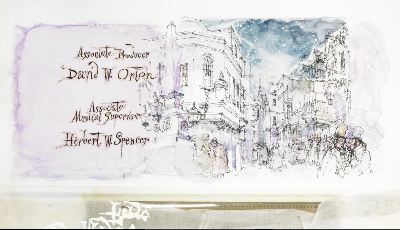 Associate Producer
David W. Orton
Associate
Musical Supervisor
Herbert W. Spencer